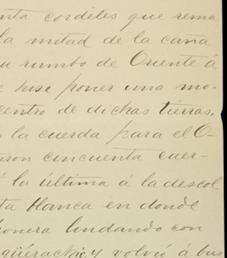 nta cordeles que rema
la mitad de la caña
u rumbo de Oriente á
e hise poner una mo-
centro de dichas tierras,
la cuerda para el O-
aron cincuenta cuer-
la última á la descol
ta blanca en donde
onera lindando con
y volvió á bus